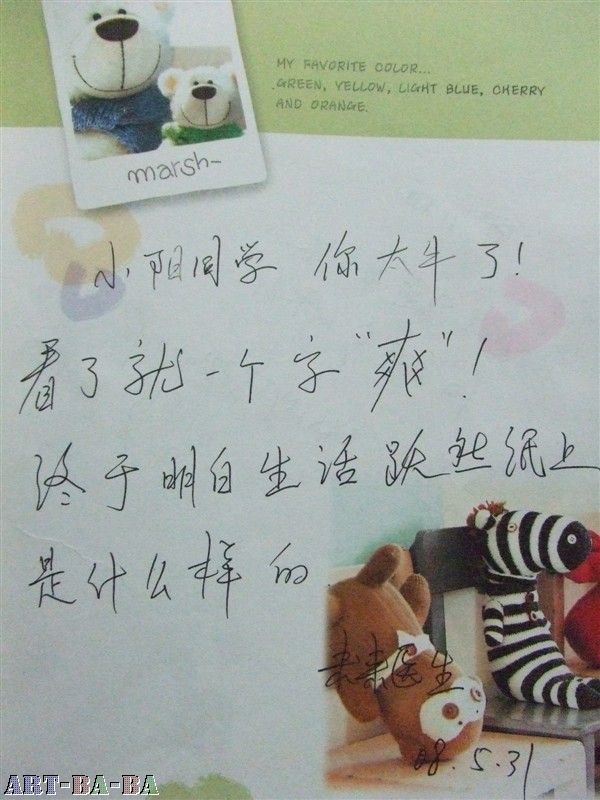 MY FAVORITE COLOR...
GREEN, YELLOW, LIGHT BLUE, CHERRY
AND ORANGE.
marsh~
小阳同学 你太牛了!
看了就一个字“爽”!
终于明白生活跃然纸上
是什么样的
医生
08.5.31
ART-BA-BA